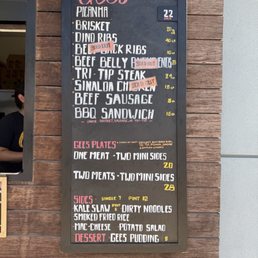 GEES
PICANHA 22
BRISKET
DINO RIBS
BACK RIBS
BEEF BELLY BURNT ENDS
TRI-TIP STEAK
SINALOA CHICKEN
BEEF SAUSAGE
BBQ SANDWICH
GEES PLATES
ONE MEAT - TWO MINI SIDES
20
TWO MEATS - TWO MINI SIDES
28
SIDES SINGLE 7 PINT 12
KALE SLAW DIRTY NOODLES
SMOKED FRIED RICE
MAC-CHEESE POTATO SALAD
DESSERT GEES PUDDING